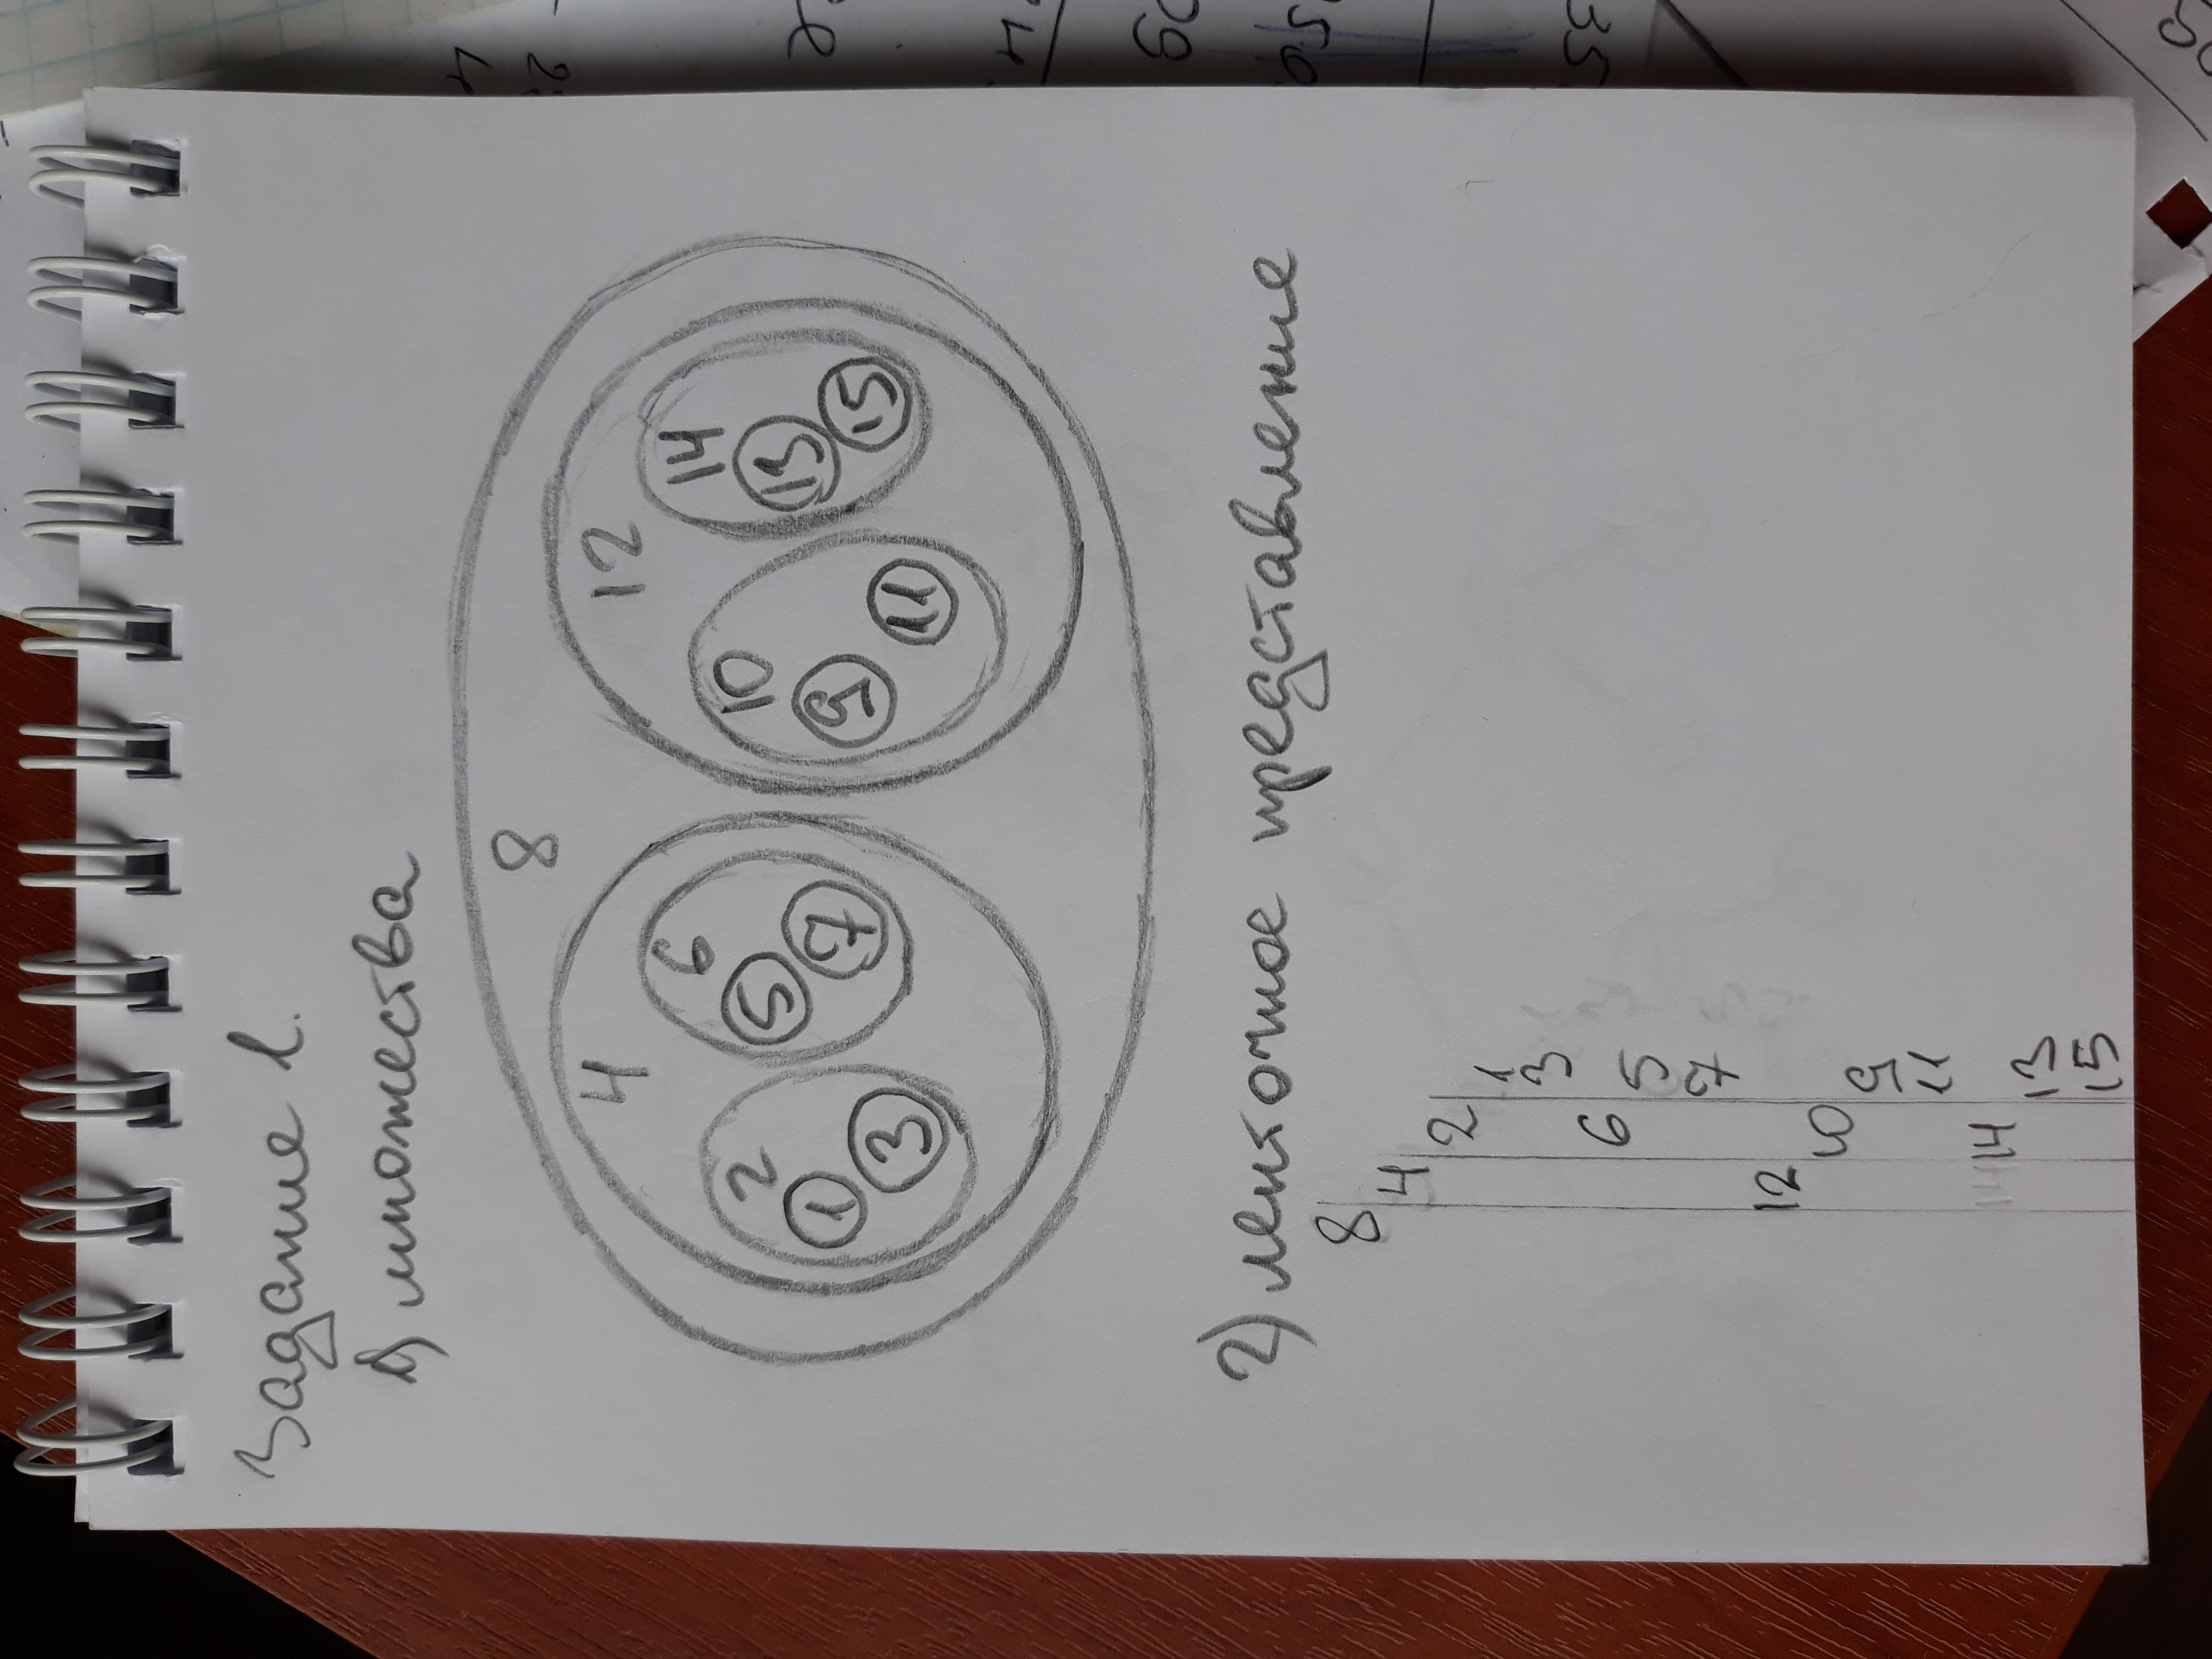 Задание 1.
1) множества
8
4 12
6 14
2 10
5 13
1 7 9 15
3 11
2) ленточное представление
8
4
2
1
3
6
5
7
12
10
9
11
14
13
15